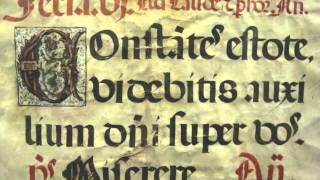 Feria.v. Ad Laudes An.
COnstātes estote,
videbitis auxi
lium dñi super vos.
ps. Miserere. Añ.